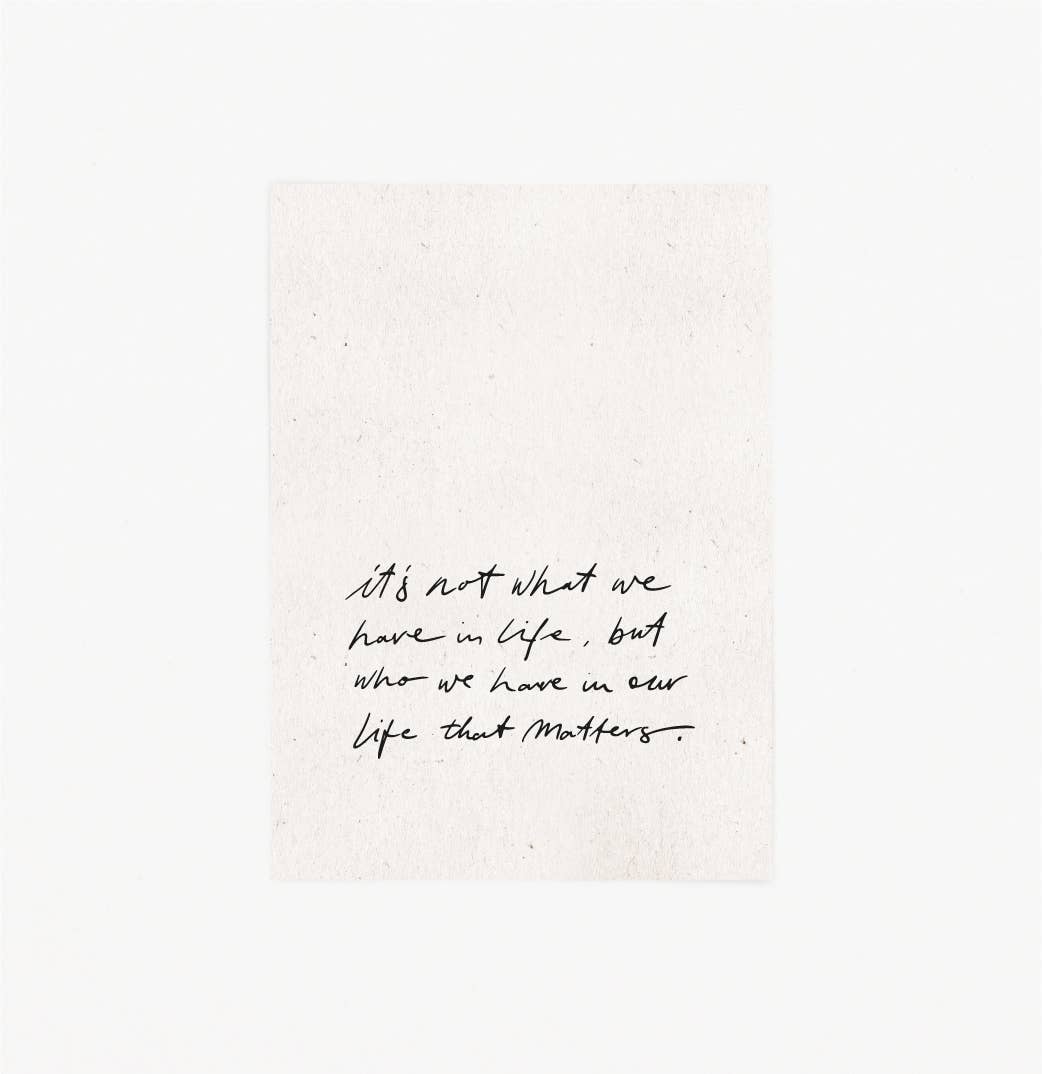 it's not what we
have in life, but
who we have in our
life that matters.